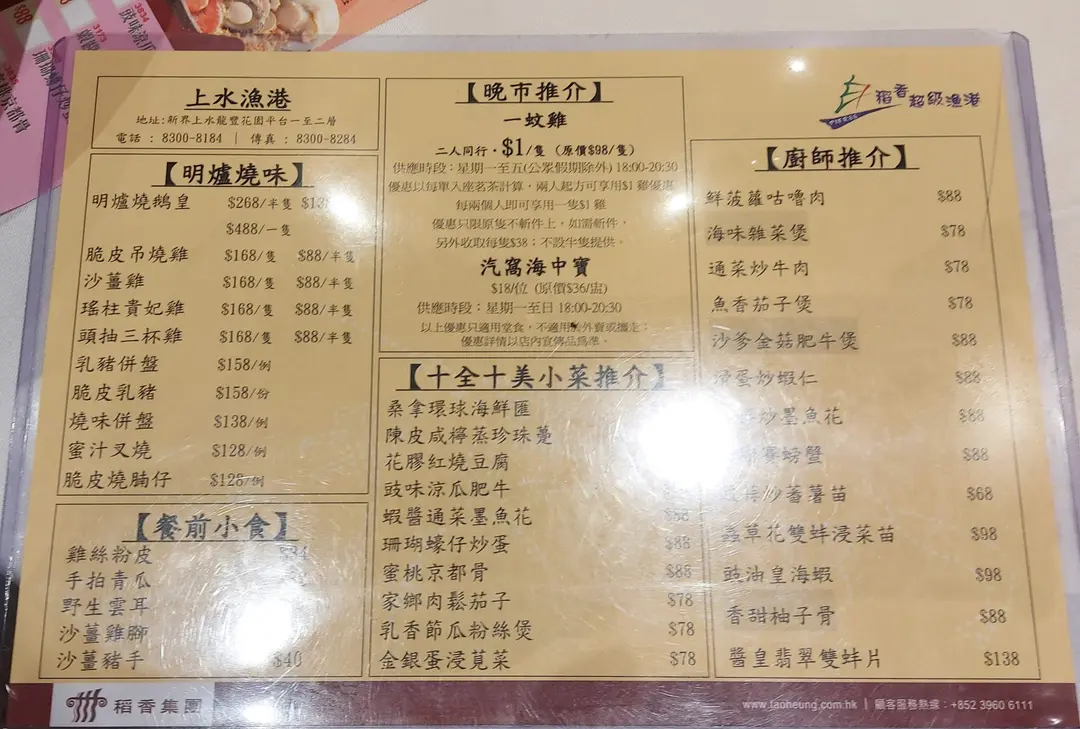 上水漁港
地址:新界上水龍豐花園平台一至二層
電話 : 8300-8184 | 傳真 : 8300-8284
【明爐燒味】
明爐燒鵝皇 $268/半隻
$488/一隻
脆皮吊燒雞 $168/隻 $88/半隻
沙薑雞 $168/隻 $88/半隻
瑤柱貴妃雞 $168/隻 $88/半隻
頭抽三杯雞 $168/隻 $88/半隻
乳豬併盤 $158/例
脆皮乳豬 $158/份
燒味併盤 $138/例
蜜汁叉燒 $128/例
脆皮燒腩仔 $128/例
【餐前小食】
雞絲粉皮
手拍青瓜
野生雲耳
沙薑雞腳
沙薑豬手 $40
【晚市推介】
一蚊雞
二人同行·$1/隻 (原價$98/隻)
供應時段：星期一至五(公眾假期除外) 18:00-20:30
優惠以每單入座茗茶計算，兩人起方可享用$1 雞優惠
每兩個人即可享用一隻$1 雞
優惠只限原隻不斬件上，如需斬件，
另外收取每隻$38；不設半隻提供。
汽窩海中寶
$18/位 (原價$36/盅)
供應時段：星期一至日 18:00-20:30
以上優惠只適用堂食，不適用於外賣或攜走；
優惠詳情以店內宣傳品為準。
【十全十美小菜推介】
桑拿環球海鮮匯
陳皮咸檸蒸珍珠躉
花膠紅燒豆腐
豉味涼瓜肥牛
蝦醬通菜墨魚花 $88
珊瑚蠔仔炒蛋 $88
蜜桃京都骨 $88
家鄉肉鬆茄子 $78
乳香節瓜粉絲煲 $78
金銀蛋浸莧菜 $78
稻香超級漁港
【廚師推介】
鮮菠蘿咕嚕肉 $88
海味雜菜煲 $78
通菜炒牛肉 $78
魚香茄子煲 $78
沙爹金菇肥牛煲 $88
滑蛋炒蝦仁 $88
炒墨魚花 $88
賽螃蟹 $88
炒蕃薯苗 $68
蟲草花雙蚌浸菜苗 $98
豉油皇海蝦 $98
香甜柚子骨 $88
醬皇翡翠雙蚌片 $138
稻香集團
www.taoheung.com.hk | 顧客服務熱線：+852 3960 6111